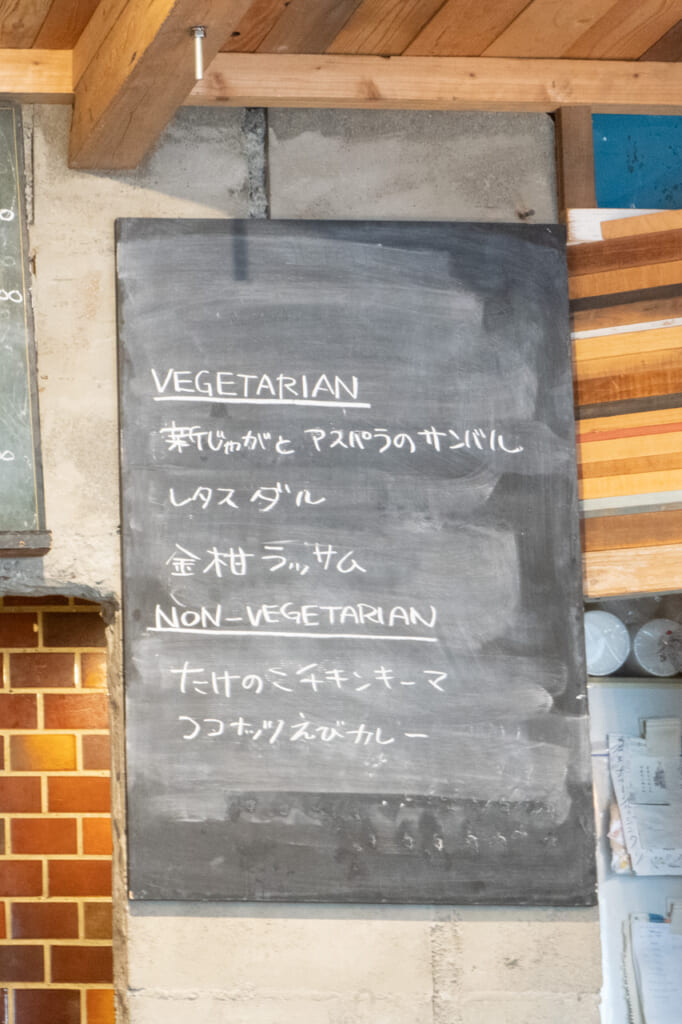 VEGETARIAN
新じゃがと アスパラの サンバル
レタス ダル
金柑 ラッサム
NON-VEGETARIAN
たけのこチキンキーマ
ココナッツえびカレー